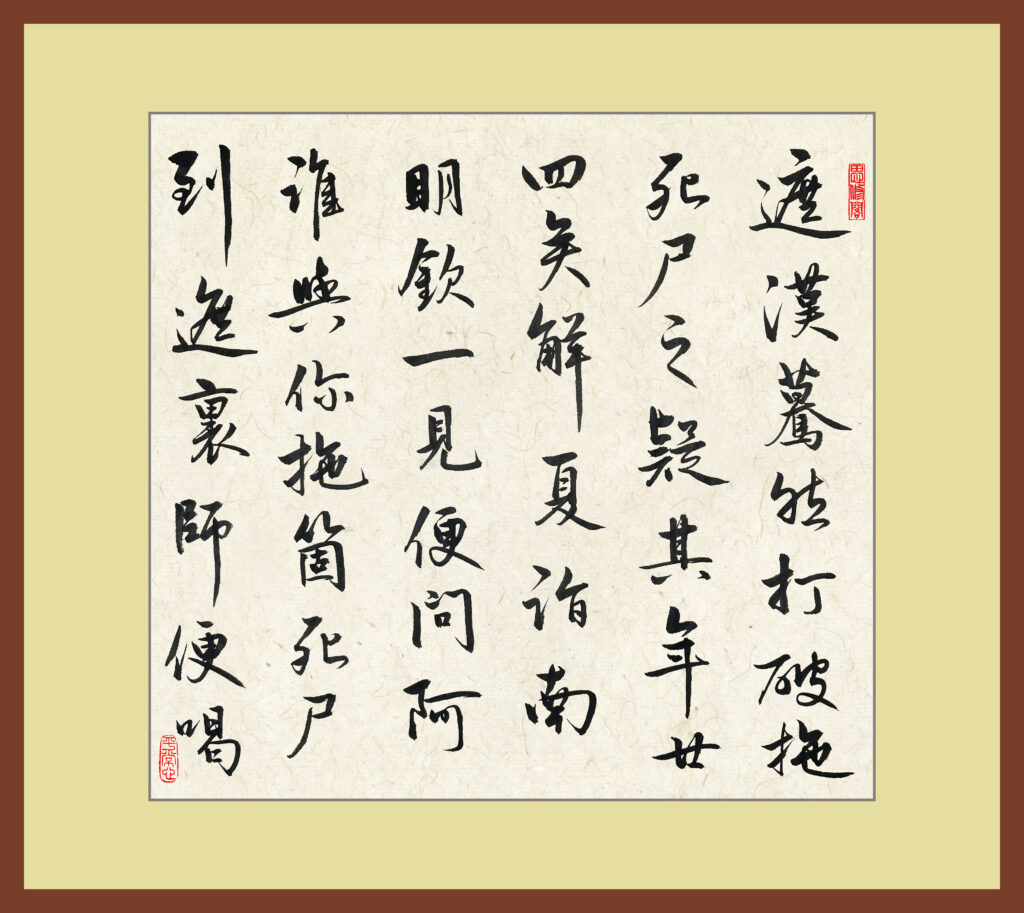 思修閣
遮漢驀然打破拖
死尸之疑其年廿
四矣解夏詣南
明欽一見便問阿
誰與你拖箇死尸
到遮裏師便喝
平常心